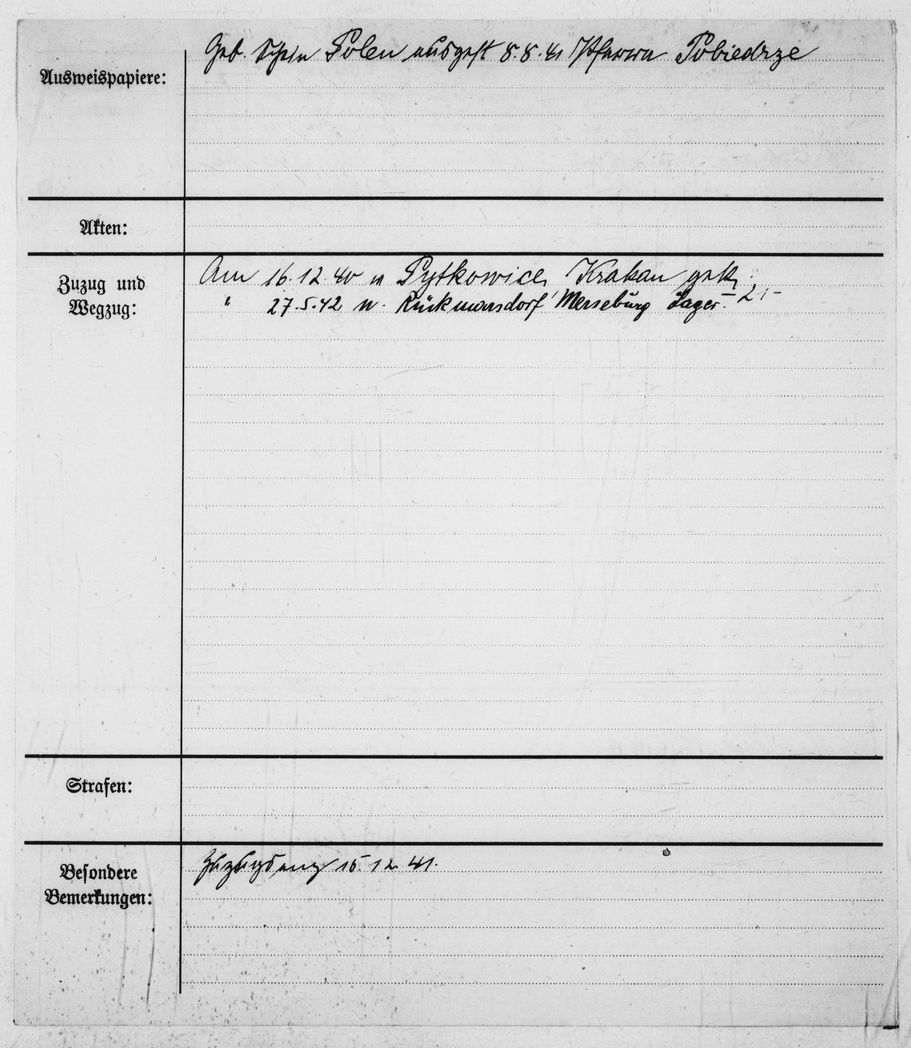 Ausweispapiere:
Geb. Schein Polen ausgest 8.8.41 Pfarra Pobiedrze
Akten:
Zuzug und
Wegzug:
Am 16.12.40 v Pytkowice, Krakau gek.
" 27.5.42 n. Rückmansdorf Merseburg Lager
Strafen:
Besondere
Bemerkungen:
Zuzugsanz 15.12.41.